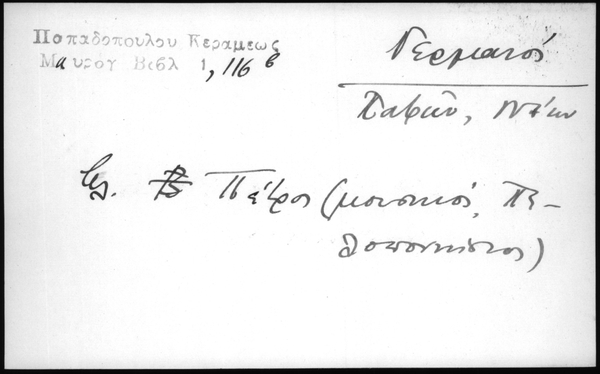 Παπαδοπουλου Κεραμεως
Μαυρογ Βιβλ 1, 116 β
Γερμανός
Παφῶν, Νέων
βλ. Πέτρος (μουσικός, Πε-
λοποννήσιος)